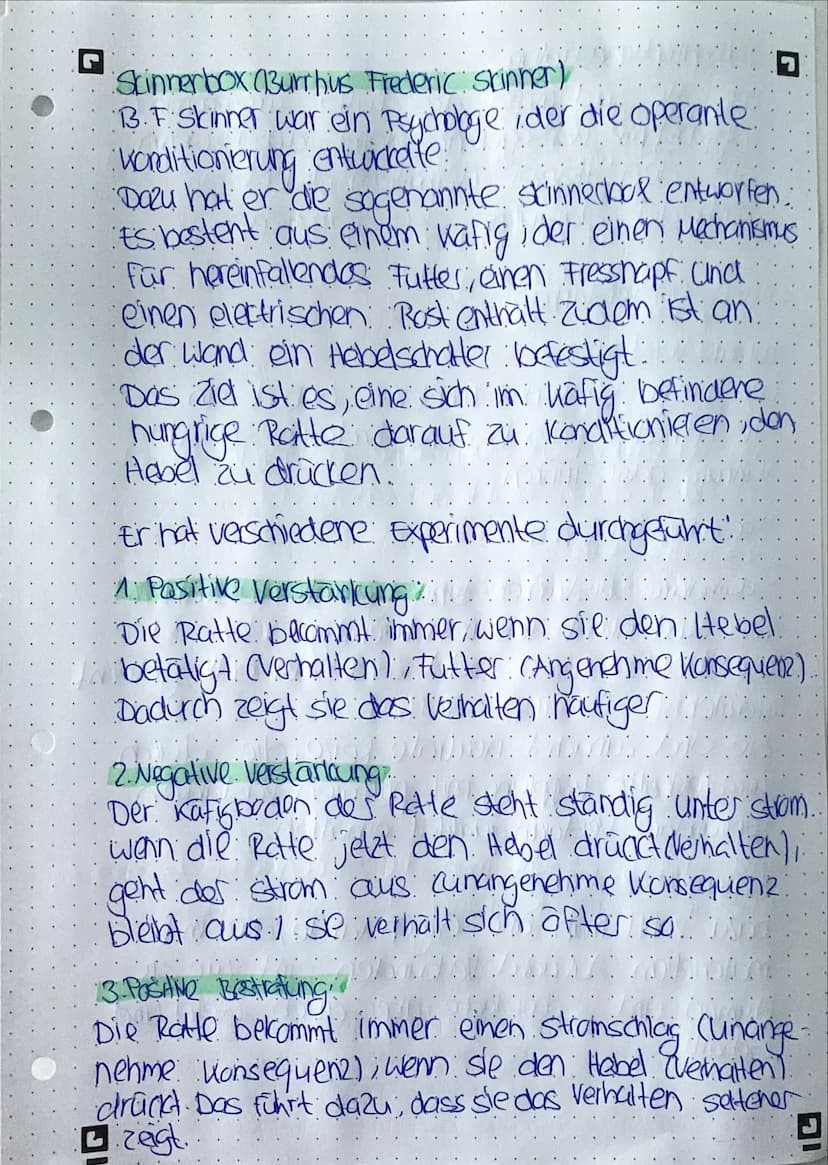 Skinnerbox (Burrhus Frederic Skinner)
B. F. Skinner war ein Psychologe, der die operante
Konditionierung entwickelte.
Dazu hat er die sogenannte Skinnerbox entworfen.
Es besteht aus einem Käfig, der einen Mechanismus
für hereinfallendes Futter, einen Fressnapf und
einen electrischen Rost enthält. Zudem ist an
der Wand ein Hebelschalter befestigt.
Das Ziel ist es, eine sich im Käfig befindere
hungrige Ratte darauf zu konditionieren, den
Hebel zu drücken.
Er hat verschiedene Experimente durchgeführt:
1. Positive Verstärkung:
Die Ratte bekommt immer, wenn sie den Hebel
betätigt (Verhalten), Futter (Angenehme Konsequenz).
Dadurch zeigt sie das Verhalten häufiger.
2. Negative Verstärkung:
Der Käfigboden der Ratte steht ständig unter Strom.
wenn die Ratte jetzt den Hebel drückt (Verhalten),
geht der Strom aus (unangenehme Konsequenz
bleibt aus) sie verhält sich öfter so.
3. Positive Bestrafung:
Die Ratte bekommt immer einen Stromschlag (unange-
nehme Konsequenz), wenn sie den Hebel (Verhalten)
drückt. Das führt dazu, dass sie das Verhalten seltener
zeigt.